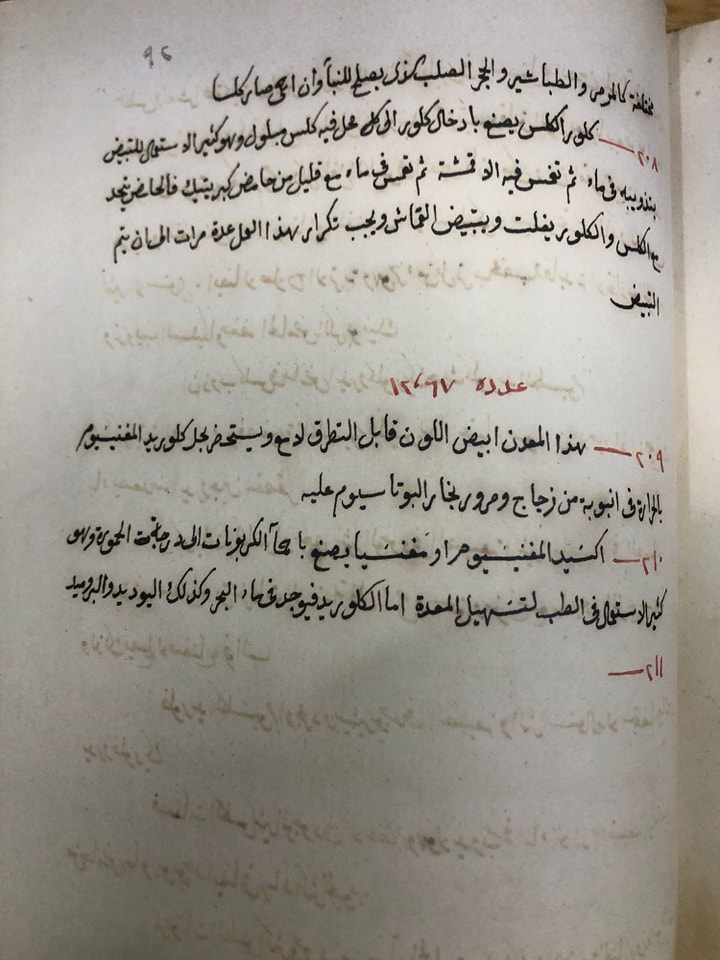 ٩٦
مختلفة كالمرمر والطباشير والحجر الصلب كذى يصلح للبنأ وان احمى صار كلسا
٢٠٨ — كلور الكلس يصنع بادخال كلور الى كل محل فيه كلس مبلول وهو كثير الاستعمال للتبيض
بتذويبه فى ماء ثم تغمس فيه الاقمشة ثم تغمس فى ماء مع قليل من حامض كبريتيك فالحامض يتحد
مع الكلس والكلور يفلت ويبيض القماش ويجب تكرار هذا العمل عدة مرات الى ان يتم
التبيض
عدده ١٢،٦٧
٢٠٩ — هذا المعدن ابيض اللون قابل التطرق لامع ويستحضر بحل كلوريد المغنيسيوم
بالحرارة فى انبوبة من زجاج ومرور بخار البوتاسيوم عليه
٢١٠ — اكسيد المغنيسيوم او مغنسيا يصنع باحمآ الكربونات الى درجة الحمرة وهو
كثير الاستعمال فى الطب لتسهيل المعدة اما الكلوريد فيوجد فى ماء البحر وكذلك اليوديد والبروميد
٢١١ —